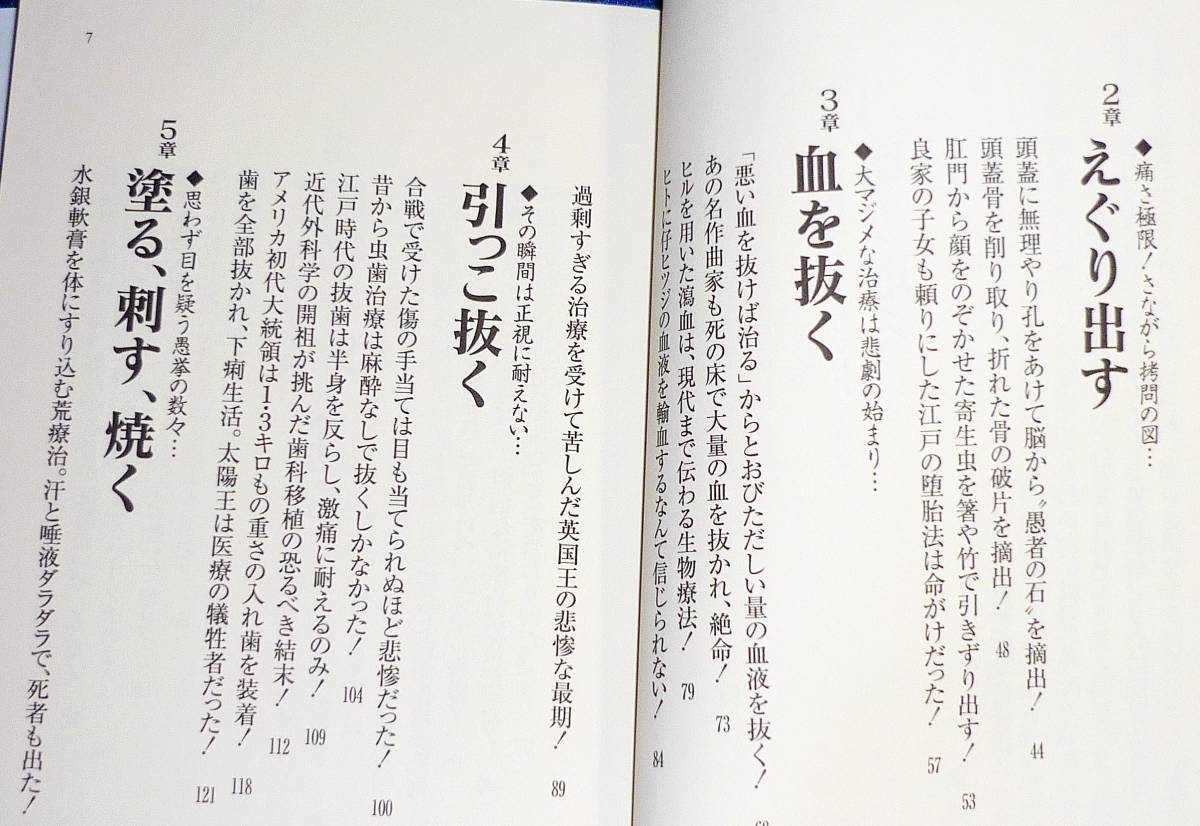 2章
えぐり出す
◆痛さ極限！さながら拷問の図…
頭蓋に無理やり孔をあけて脳から〝愚者の石〟を摘出！ 44
頭蓋骨を削り取り、折れた骨の破片を摘出！ 48
肛門から顔をのぞかせた寄生虫を箸や竹で引きずり出す！ 53
良家の子女も頼りにした江戸の堕胎法は命がけだった！ 57
3章
血を抜く
◆大マジメな治療は悲劇の始まり…
「悪い血を抜けば治る」からとおびただしい量の血液を抜く！
あの名作曲家も死の床で大量の血を抜かれ、絶命！ 73
ヒルを用いた瀉血は、現代まで伝わる生物療法！ 79
ヒトに仔ヒツジの血液を輸血するなんて信じられない！ 84
過剰すぎる治療を受けて苦しんだ英国王の悲惨な最期！ 89
4章
引っこ抜く
◆その瞬間は正視に耐えない…
合戦で受けた傷の手当ては目も当てられぬほど悲惨だった！ 100
昔から虫歯治療は麻酔なしで抜くしかなかった！ 104
江戸時代の抜歯は半身を反らし、激痛に耐えるのみ！ 109
近代外科学の開祖が挑んだ歯科移植の恐るべき結末！ 112
アメリカ初代大統領は1・3キロもの重さの入れ歯を装着！ 118
歯を全部抜かれ、下痢生活。太陽王は医療の犠牲者だった！ 121
5章
塗る、刺す、焼く
◆思わず目を疑う愚挙の数々…
水銀軟膏を体にすり込む荒療治。汗と唾液ダラダラで、死者も出た！
7